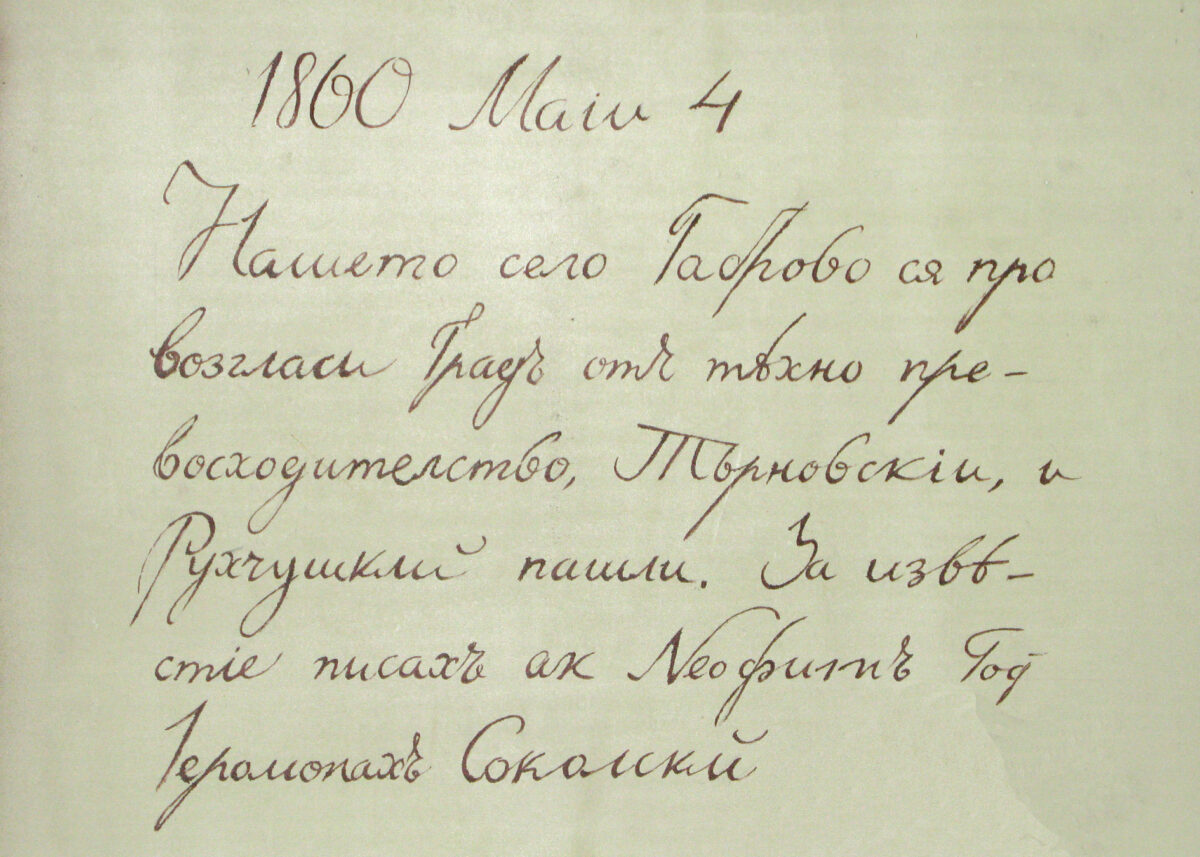 1860 Маіи 4
Нашето село Габрово ся про
возгласи Градъ отъ тѣхно пре-
восходителство, Тьрновскіи, и
Рухчушкий пашли. За извѣ-
стіе писахъ ак Neофитъ Год
Іеромонахъ Соколскй